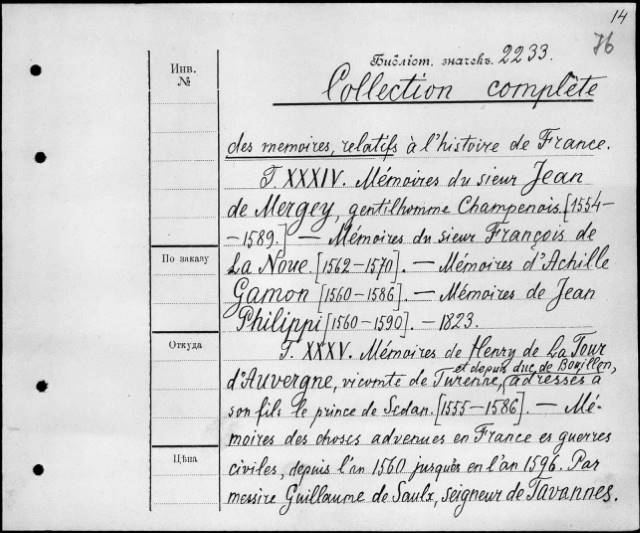 14
76
Инв.
№
Библіот. значекъ. 2233.
Collection complète
des memoires, relatifs à l'histoire de France.
T. XXXIV. Mémoires du sieur Jean
de Mergey, gentilhomme Champenois. [1554—
—1589.] — Mémoires du sieur François de
По заказу
La Noue. [1562—1570]. — Mémoires d'Achille
Gamon [1560—1586]. — Mémoires de Jean
Philippi [1560—1590]. — 1823.
Откуда
T. XXXV. Mémoires de Henry de La Tour
et depuis duc de Bouillon,
d'Auvergne, vicomte de Turenne, adressés à
son fils le prince de Sedan. [1555—1586]. — Mé-
moires des choses advenues en France es guerres
Цѣна
civiles, depuis l'an 1560 jusquès en l'an 1596. Par
messire Guillaume de Saulx, seigneur de Tavannes.